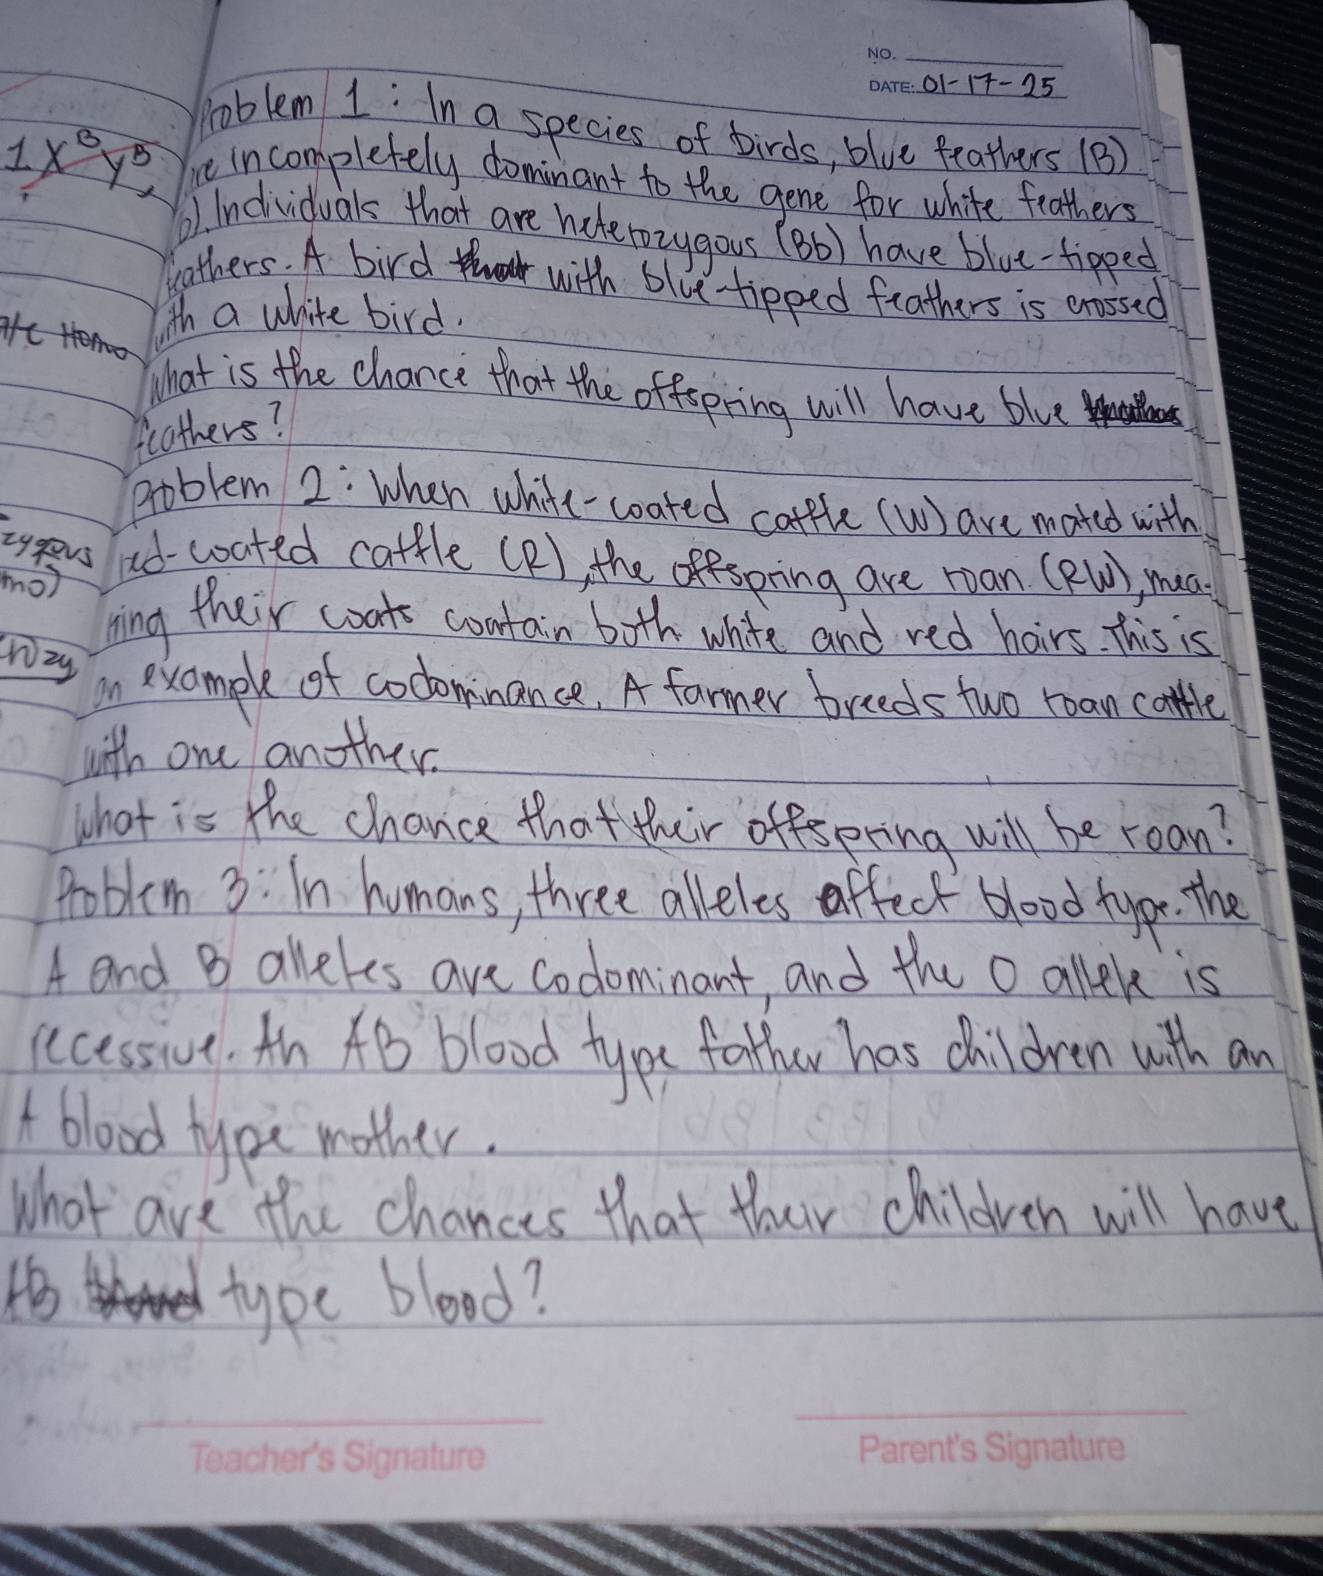 NO.
DATE: 01-17-25
Problem 1: In a species of birds, blue feathers (B)
are incompletely dominant to the gene for white feathers
(b). Individuals that are heterozygous (Bb) have blue-tipped
feathers. A bird with blue-tipped feathers is crossed
with a white bird.
What is the chance that the offspring will have blue
feathers?
Problem 2: When white-coated cattle (W) are mated with
red-coated cattle (R), the offspring are roan (RW), mea-
ning their coats contain both white and red hairs. This is
an example of codominance. A farmer breeds two roan cattle
with one another.
What is the chance that their offspring will be roan?
Problem 3: In humans, three alleles affect blood type. The
A and B alleles are codominant, and the O allele is
recessive. An AB blood type father has children with an
A blood type mother.
What are the chances that their children will have
AB type blood?
Teacher's Signature
Parent's Signature
1 X^B Y^B
Homo
zygous
mo)